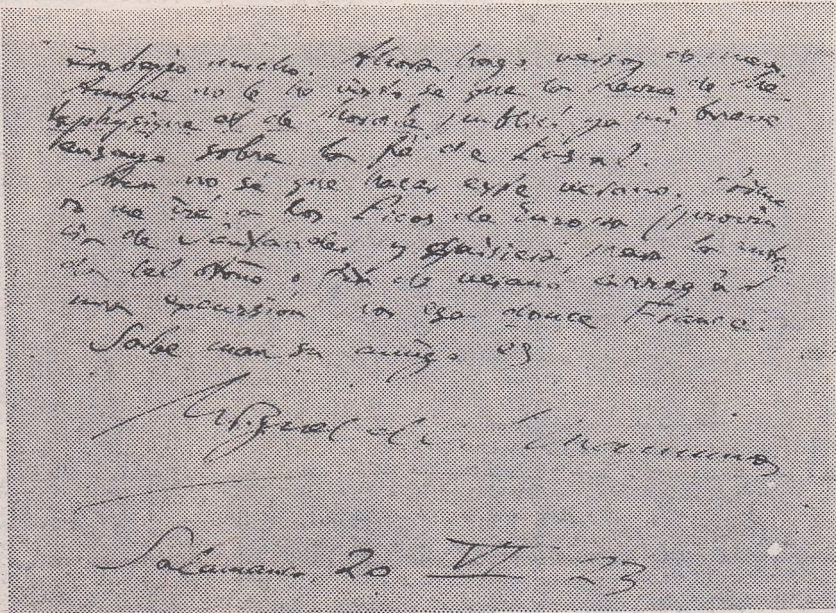 Trabajo mucho. Ahora hago versos
Aunque no lo he visto sé que la Revue de Mé-
taphysique et de Morale publicó ya mi breve
ensayo sobre la fé de Pascal.
Aun no sé que hacer este verano. Prime
ro me iré a los Picos de Europa (provin
cia de Santander) y quisiera para la entra
da del otoño o fin de verano
una excursión a esa douce France.
Sabe cuan su amigo es
Miguel de Unamuno
Salamanca, 20 VI 23